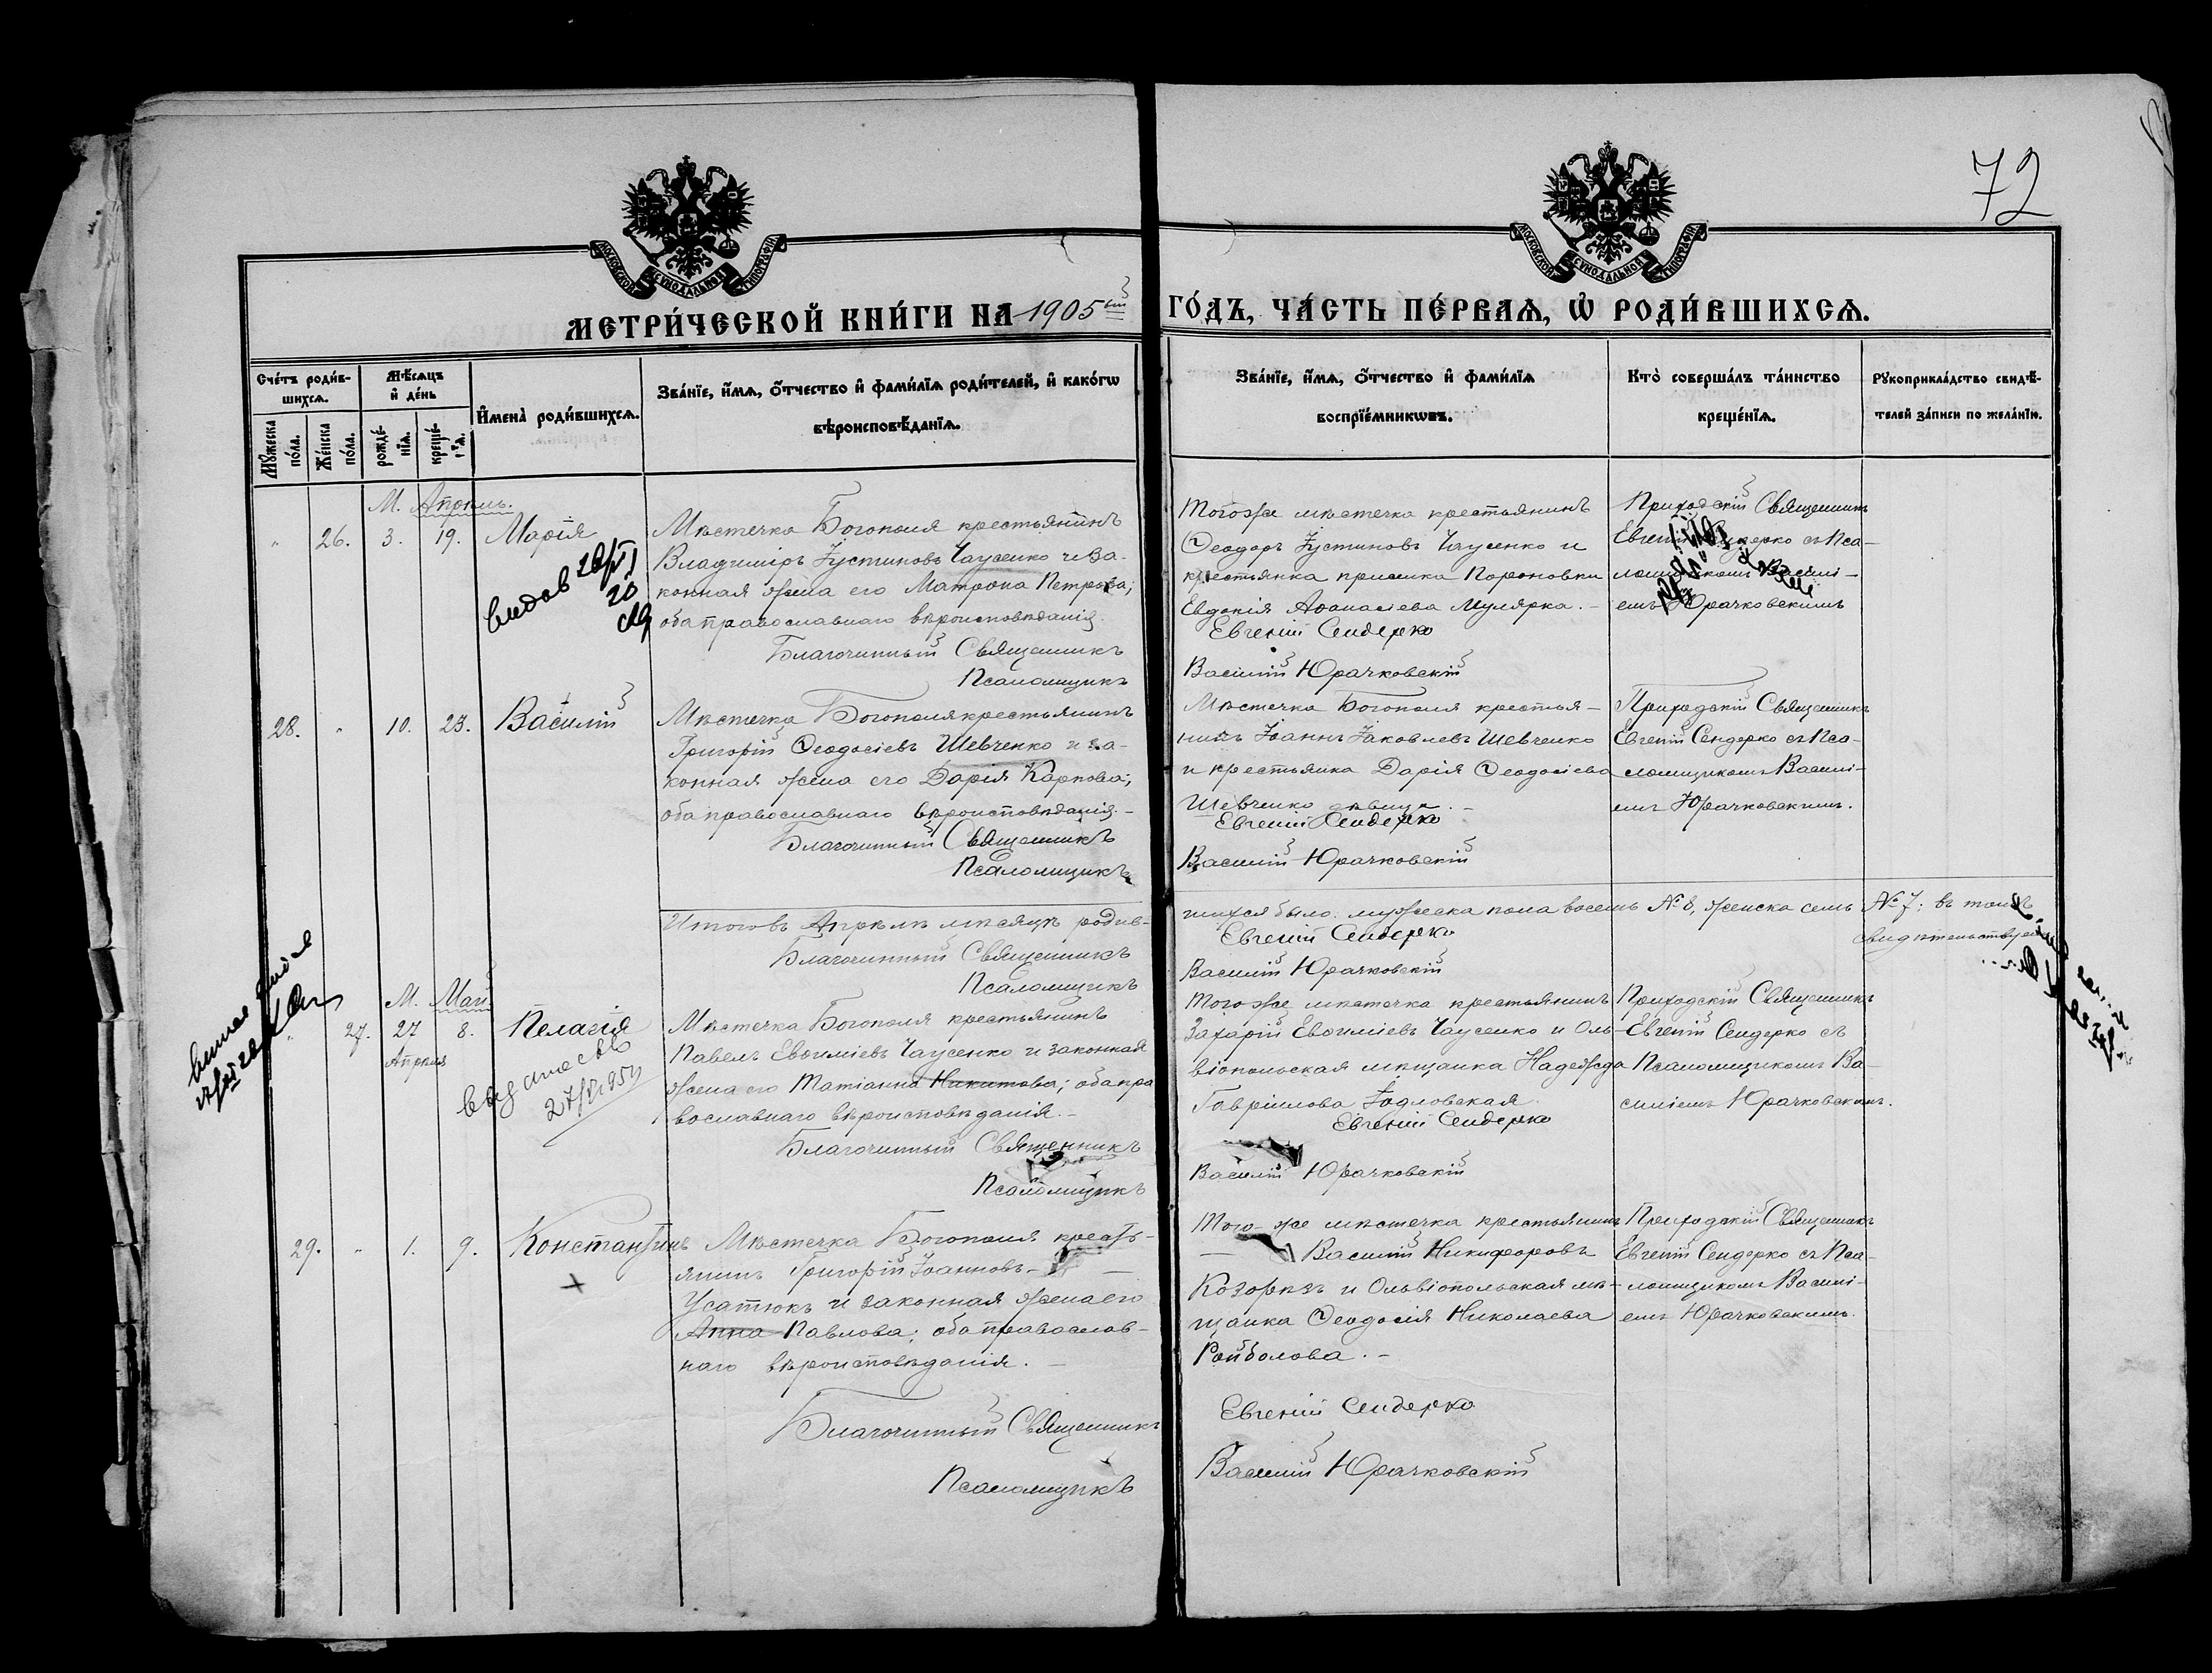 72
МОСКОВСКОЙ СѴНОДАЛЬНОЙ ТИПОГРАФІИ
МОСКОВСКОЙ СѴНОДАЛЬНОЙ ТИПОГРАФІИ
МЕТРИ́ЧЕСКОЙ КНИ́ГИ НА 1905ый ГО́ДЪ, ЧА́СТЬ ПЕ́РВАѦ, Ѽ РОДИ́ВШИХСѦ.
Сче́тъ роди́в-
шихсѧ.
Мꙋ́жеска
по́ла.
Же́нска
по́ла.
Мѣ́сѧцъ
и҆ де́нь
рожде́-
нїѧ.
креще́-
нїѧ.
И҆мена̀ роди́вшихсѧ.
Зва́нїе, и҆́мѧ, ѻ҆́тчество и҆ фами́лїѧ роди́телей, и҆ како́гѡ
вѣроисповѣ́данїѧ.
Зва́нїе, и҆́мѧ, ѻ҆́тчество и҆ фами́лїѧ
воспрїе́мникѡвъ.
Кто̀ соверша́лъ та́инство
креще́нїѧ.
Рꙋкоприкла́дство свидѣ́-
телей за́писи по жела́нїю.
М. Апрѣль.
" 26. 3. 19. Марія
Мѣстечка Богополя крестьянинъ
Владиміръ Іустиновъ Чаусенко и за-
конная жена его Матрона Петрова;
оба православнаго вѣроисповѣданія.
Благочинный Священникъ
Псаломщикъ
Того же мѣстечка крестьянинъ
Ѳеодоръ Іустиновъ Чаусенко и
крестьянка приселка Пороновки
Евдокія Аѳанасіева Мулярка. -
Евгеній Сендерко
Василій Юрачковскій
Приходскій Священникъ
Евгеній Сендерко съ Пса-
ломщикомъ Василі-
емъ Юрачковскимъ
28. " 10. 23. Василій
Мѣстечка Богополя крестьянинъ
Григорій Ѳеодосіевъ Шевченко и за-
конная жена его Дарія Карпова;
оба православнаго вѣроисповѣданія. -
Благочинный Священникъ
Псаломщикъ
Мѣстечка Богополя крестья-
нинъ Іоаннъ Іаковлевъ Шевченко
и крестьянка Дарія Ѳеодосіева
Шевченко дѣвица. -
Евгеній Сендерко
Василій Юрачковскій
Приходскій Священникъ
Евгеній Сендерко съ Пса-
ломщикомъ Василі-
емъ Юрачковскимъ.
Итого въ Апрѣлѣ мѣсяцѣ родив-
шихся было: мужеска пола восемь № 8, женска семь № 7; въ томъ
свидѣтельствуемъ
Благочинный Священникъ
Евгеній Сендерко
Псаломщикъ
Василій Юрачковскій
М. Май.
" 27. 27 8. Пелагія
Апрѣля
27/V 1954
Мѣстечка Богополя крестьянинъ
Павелъ Евѳиміевъ Чаусенко и законная
жена его Татіанна Никитова; оба пра
вославнаго вѣроисповѣданія. -
Благочинный Священникъ
Псаломщикъ
Того же мѣстечка крестьянинъ
Захарій Евѳиміевъ Чаусенко и Оль-
віопольская мѣщанка Надежда
Гавріилова Іодловская.
Евгеній Сендерко
Василій Юрачковскій
Приходскій Священникъ
Евгеній Сендерко съ
Псаломщикомъ Ва-
силіемъ Юрачковскимъ.
29. " 1. 9. Константинъ
Мѣстечка Богополя кресть-
янинъ Григорій Іоанновъ -
Усатюкъ и законная жена его
Анна Павлова; оба православ-
наго вѣроисповѣданія. -
Благочинный Священникъ
Псаломщикъ
Того-же мѣстечка крестьянинъ
Василій Никифоровъ
Козоризъ и Ольвіопольская мѣ-
щанка Ѳеодосія Николаева
Ройболова. -
Евгеній Сендерко
Василій Юрачковскій
Приходскій Священникъ
Евгеній Сендерко съ Пса-
ломщикомъ Василі-
емъ Юрачковскимъ.